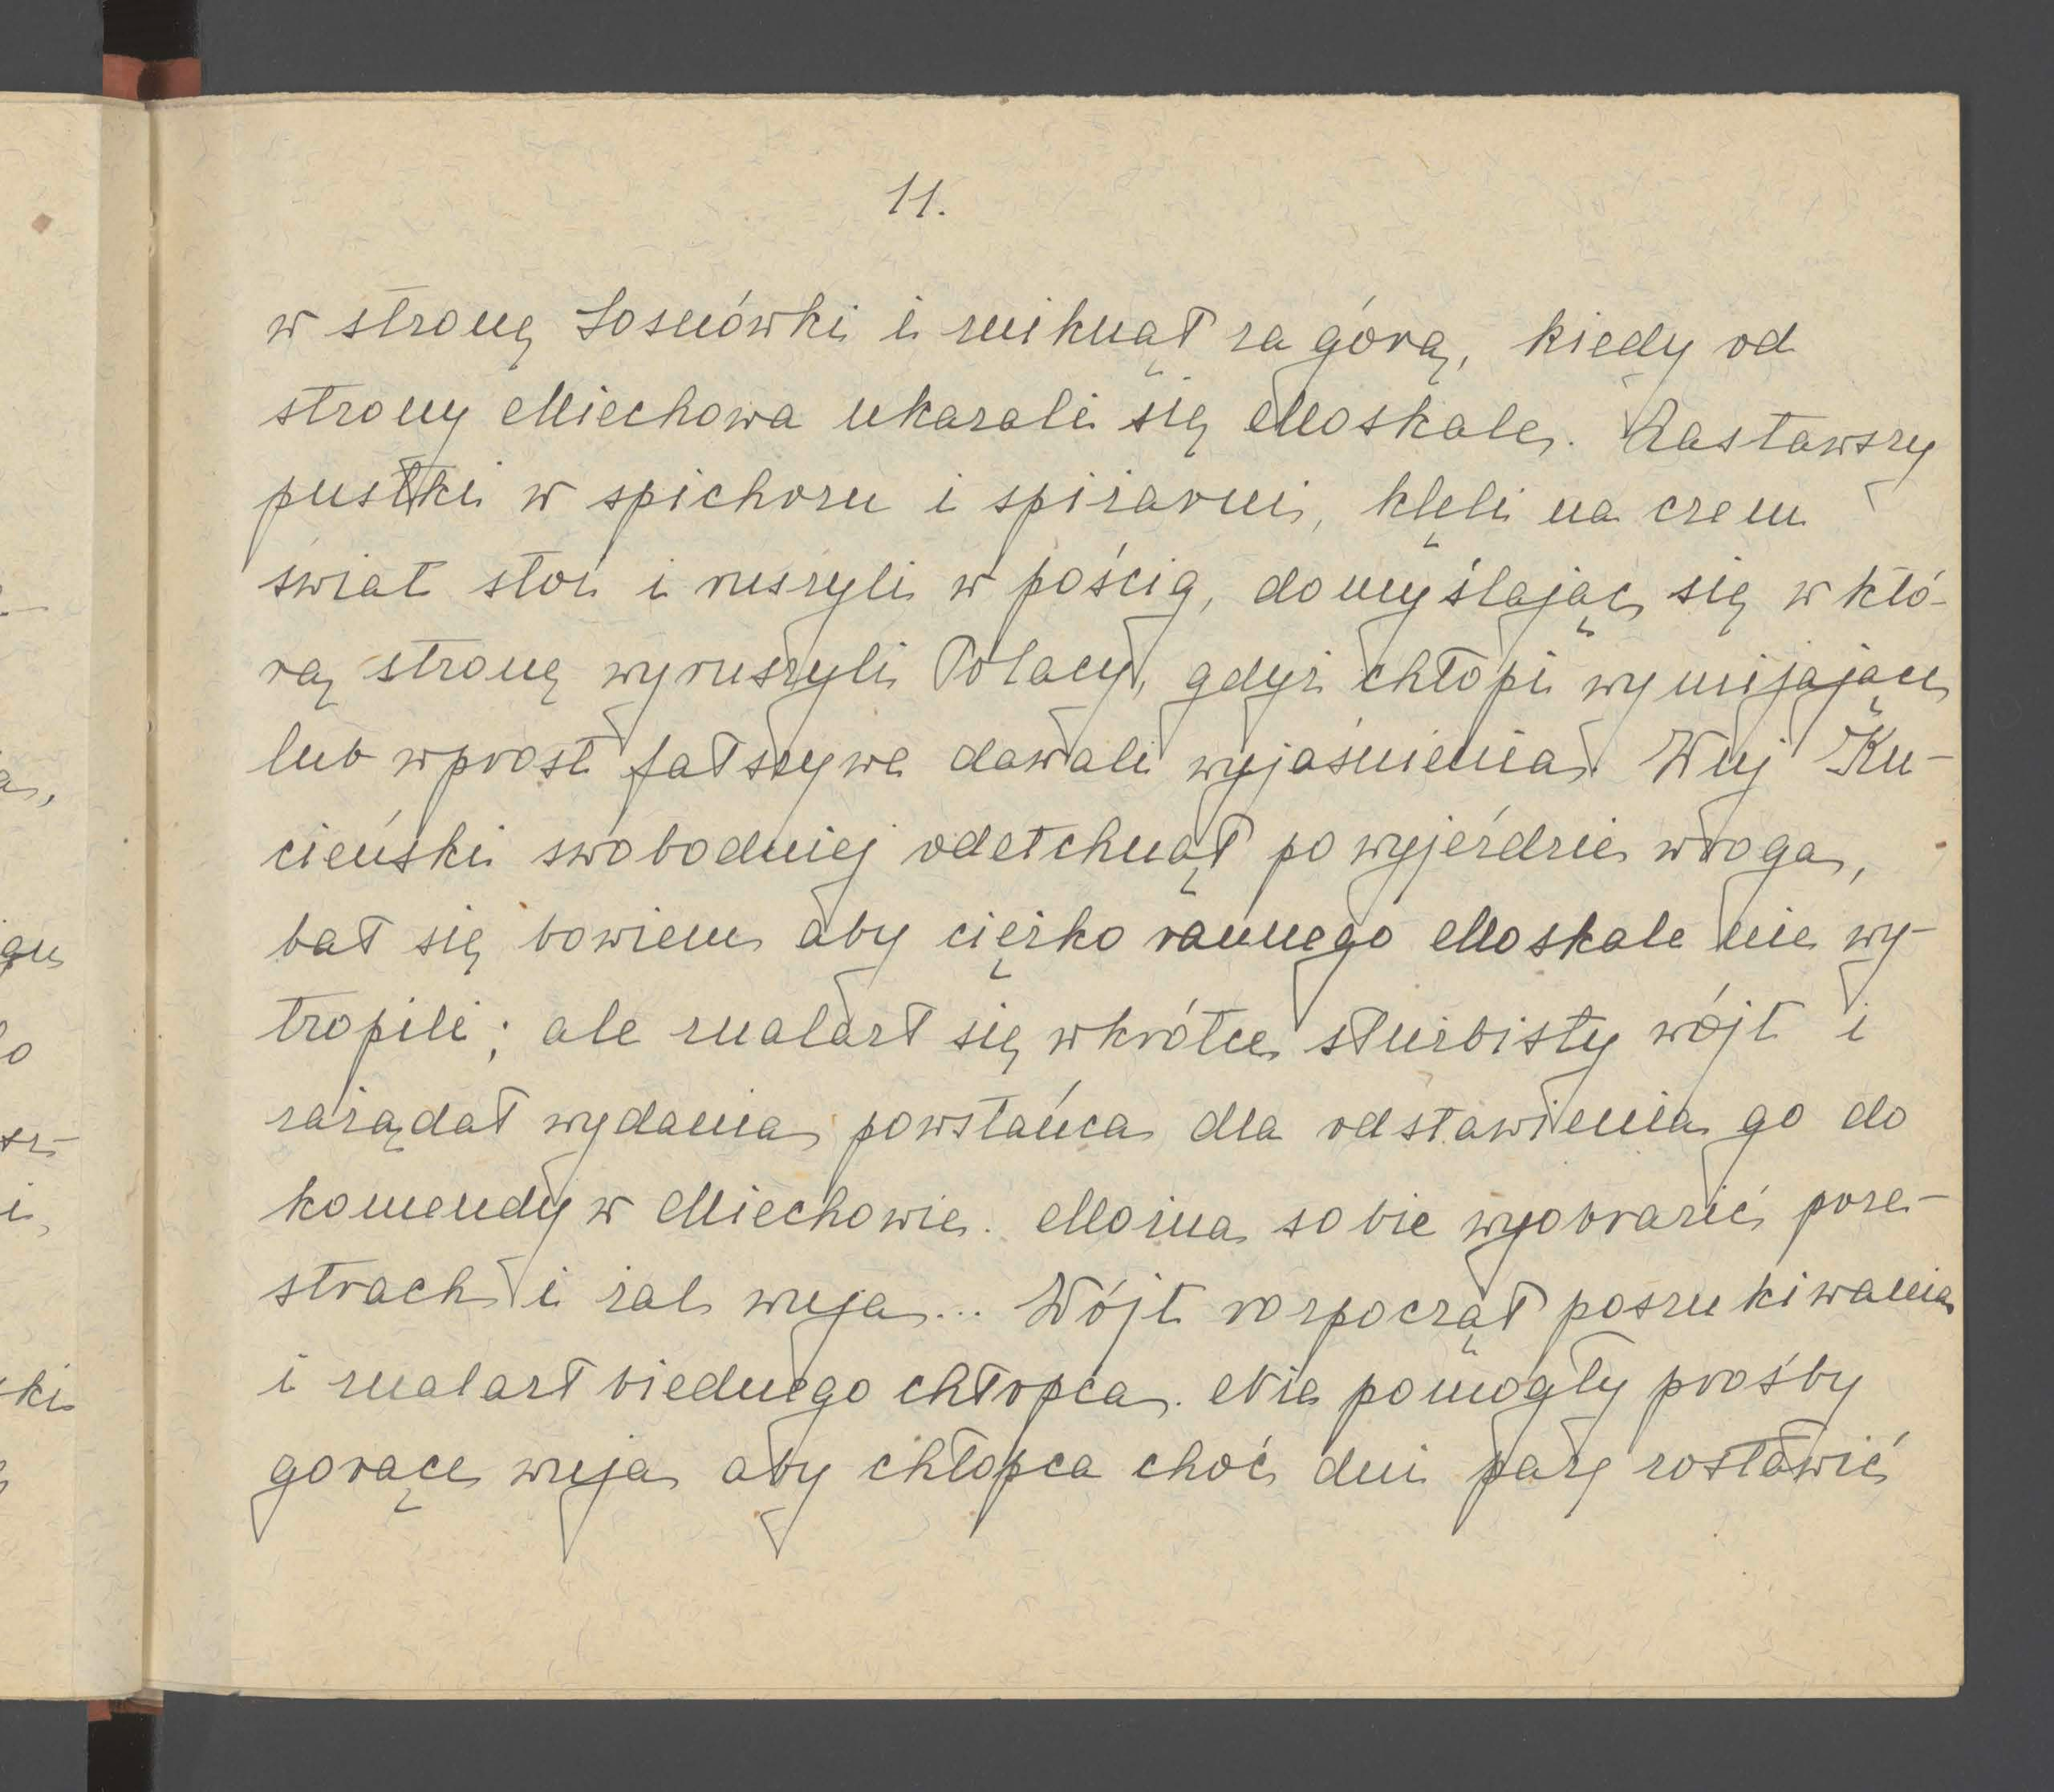 11.
w stronę Sosnówki i zniknął za górą, kiedy od
strony Miechowa ukazali się Moskale. Zastawszy
pustki w spichrzu i spiżarni, klęli na czem
świat stoi i ruszyli w pościg, domyślając się w któ-
rą stronę wyruszyli Polacy, gdyż chłopi wymijające
lub wprost fałszywe dawali wyjaśnienia. Wuj Ku-
cieński swobodniej odetchnął po wyjeździe wroga,
bał się bowiem aby ciężko rannego Moskale nie wy-
tropili; ale znalazł się wkrótce służbisty wójt i
zażądał wydania powstańca dla odstawienia go do
komendy w Miechowie. Można sobie wyobrazić prze-
strach i żal wuja... Wójt rozpoczął poszukiwania
i znalazł biednego chłopca. Nie pomogły prośby
gorące wuja aby chłopca choć dni parę zostawić